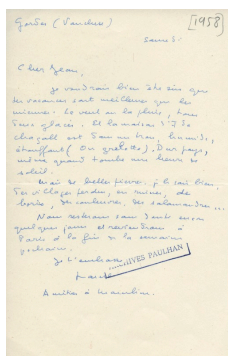 Gordes (Vaucluse)
[1958]
samedi
Cher Jean,
je voudrais bien être sûr que
tes vacances sont meilleures que les
miennes. Le vent ou la pluie, tous
deux glacés. Et la maison de
Chagall est dans un trou humide,
étouffant (on grelotte). Dur pays,
même quand tombe une heure de
soleil.
Mais de belles pierres, je le sais bien.
Des villages perdus, en ruines, de
herbe, des couleuvres, des salamandres...
Nous resterons sans doute encore
quelques jours et reviendrons à
Paris à la fin de la semaine
prochaine.
Je t'embrasse
ARCHIVES PAULHAN
Amitiés à